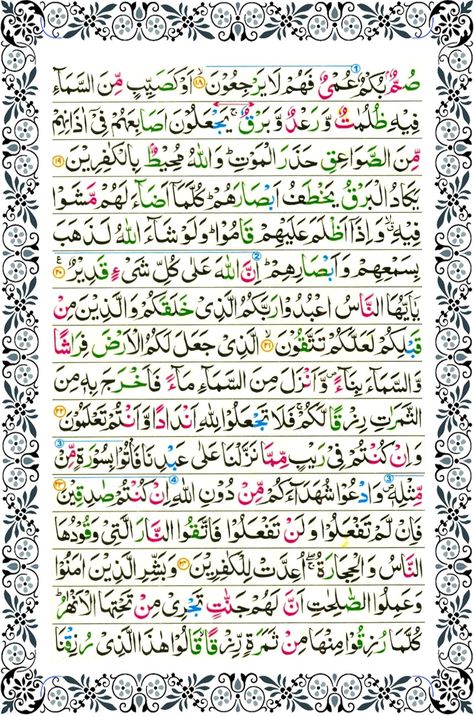 صُمٌّۢ بُكْمٌ عُمْیٌ فَهُمْ لَا یَرْجِعُوْنَ ۙ﴿۱۸﴾ اَوْ كَصَیِّبٍ مِّنَ السَّمَآءِ
فِیْهِ ظُلُمٰتٌ وَّ رَعْدٌ وَّ بَرْقٌ ۚ یَجْعَلُوْنَ اَصَابِعَهُمْ فِیْۤ اٰذَانِهِمْ
مِّنَ الصَّوَاعِقِ حَذَرَ الْمَوْتِ ؕ وَ اللّٰهُ مُحِیْطٌۢ بِالْكٰفِرِیْنَ ﴿۱۹﴾
یَكَادُ الْبَرْقُ یَخْطَفُ اَبْصَارَهُمْ ؕ كُلَّمَاۤ اَضَآءَ لَهُمْ مَّشَوْا
فِیْهِ ۙ وَ اِذَاۤ اَظْلَمَ عَلَیْهِمْ قَامُوْا ؕ وَ لَوْ شَآءَ اللّٰهُ لَذَهَبَ
بِسَمْعِهِمْ وَ اَبْصَارِهِمْ ؕ اِنَّ اللّٰهَ عَلٰی كُلِّ شَیْءٍ قَدِیْرٌ ﴿۲۰﴾
یٰۤاَیُّهَا النَّاسُ اعْبُدُوْا رَبَّكُمُ الَّذِیْ خَلَقَكُمْ وَ الَّذِیْنَ مِنْ
قَبْلِكُمْ لَعَلَّكُمْ تَتَّقُوْنَ ۙ﴿۲۱﴾ الَّذِیْ جَعَلَ لَكُمُ الْاَرْضَ فِرَاشًا
وَّ السَّمَآءَ بِنَآءً ۪ وَّ اَنْزَلَ مِنَ السَّمَآءِ مَآءً فَاَخْرَجَ بِهٖ مِنَ
الثَّمَرٰتِ رِزْقًا لَّكُمْ ۚ فَلَا تَجْعَلُوْا لِلّٰهِ اَنْدَادًا وَّ اَنْتُمْ تَعْلَمُوْنَ ﴿۲۲﴾
وَ اِنْ كُنْتُمْ فِیْ رَیْبٍ مِّمَّا نَزَّلْنَا عَلٰی عَبْدِنَا فَاْتُوْا بِسُوْرَةٍ مِّنْ
مِّثْلِهٖ ۪ وَ ادْعُوْا شُهَدَآءَكُمْ مِّنْ دُوْنِ اللّٰهِ اِنْ كُنْتُمْ صٰدِقِیْنَ ﴿۲۳﴾
فَاِنْ لَّمْ تَفْعَلُوْا وَ لَنْ تَفْعَلُوْا فَاتَّقُوا النَّارَ الَّتِیْ وَقُوْدُهَا
النَّاسُ وَ الْحِجَارَةُ ۖۚ اُعِدَّتْ لِلْكٰفِرِیْنَ ﴿۲۴﴾ وَ بَشِّرِ الَّذِیْنَ اٰمَنُوْا
وَ عَمِلُوا الصّٰلِحٰتِ اَنَّ لَهُمْ جَنّٰتٍ تَجْرِیْ مِنْ تَحْتِهَا الْاَنْهٰرُ ؕ
كُلَّمَا رُزِقُوْا مِنْهَا مِنْ ثَمَرَةٍ رِّزْقًا ۙ قَالُوْا هٰذَا الَّذِیْ رُزِقْنَا